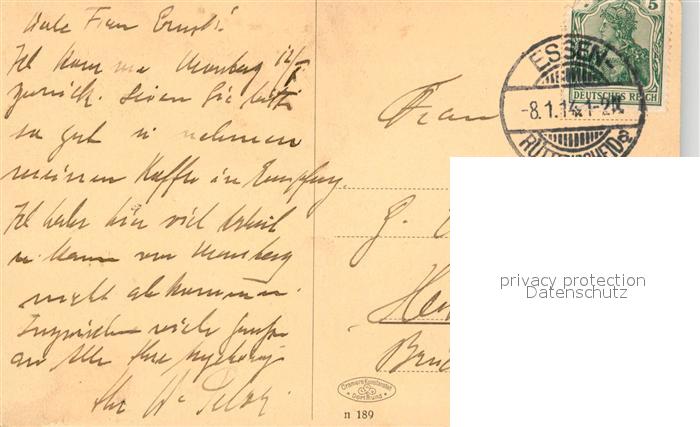 Liebe Frau Ernst!
Ich komme Montag 12/I
zurück. Seien Sie bitte
so gut u nehmen
meinen Koffer in Empfang.
Ich habe hier viel Arbeit
u. kann vor Montag
nicht abkommen.
Inzwischen viele Grüße
an Alle Ihre
Ihr
Frau
Brü
5
DEUTSCHES REICH
ESSEN-
-8.1.14.1-2N.
RÜTTENSCHEID a
privacy protection
Datenschutz
Cramers Kunstanstalt
Dortmund
n 189